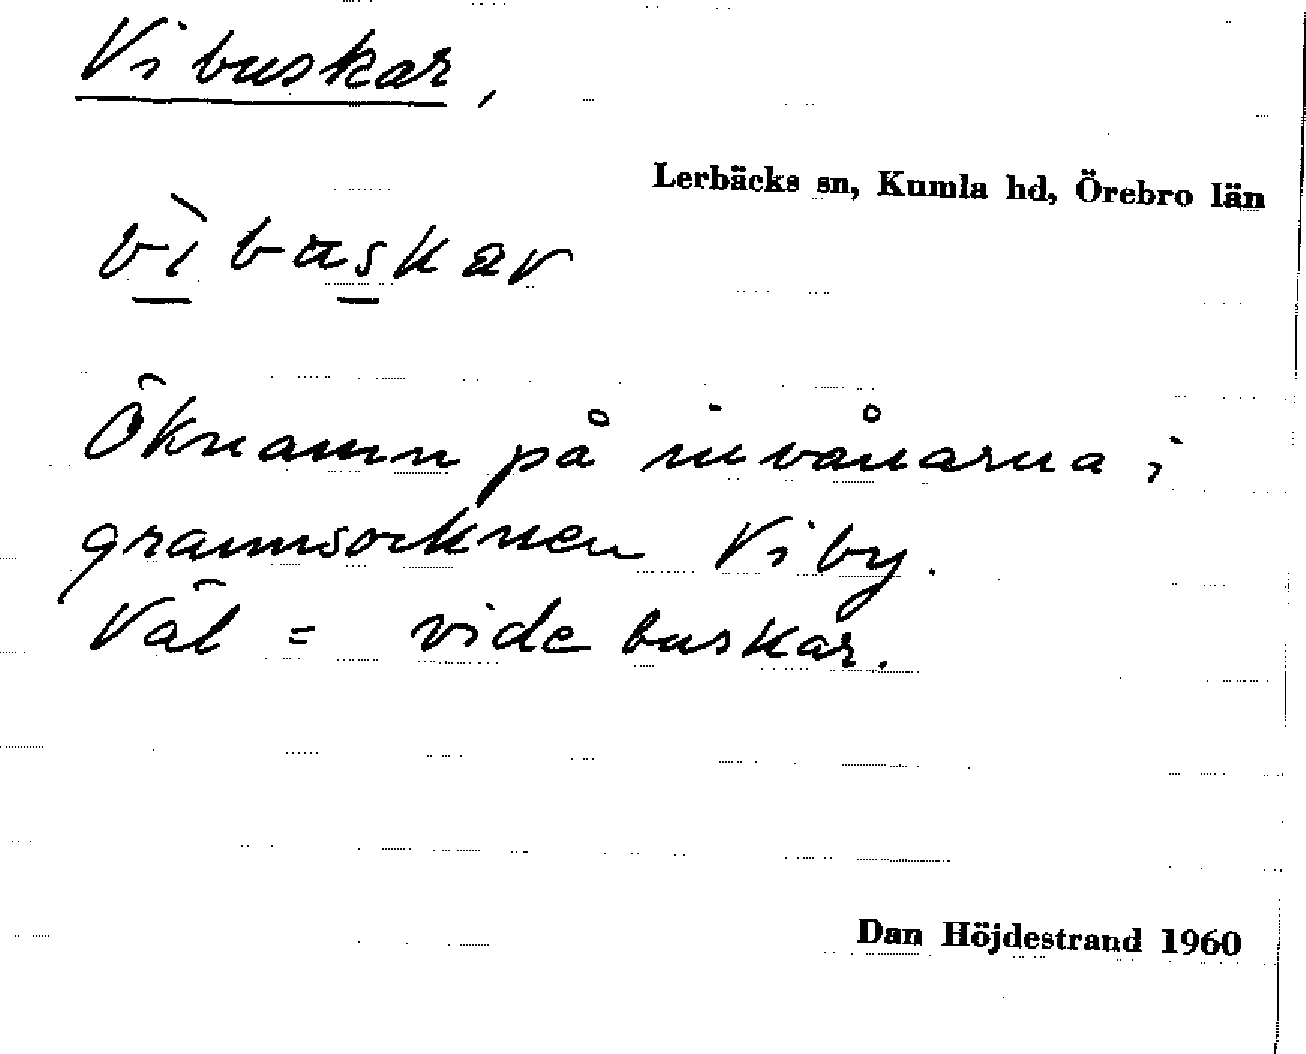 Vibuskar,
Lerbäcks sn, Kumla hd, Örebro län
vìbuskar
Öknamn på invånarna i
grannsocknen Viby.
Väl = vide buskar.
Dan Höjdestrand 1960